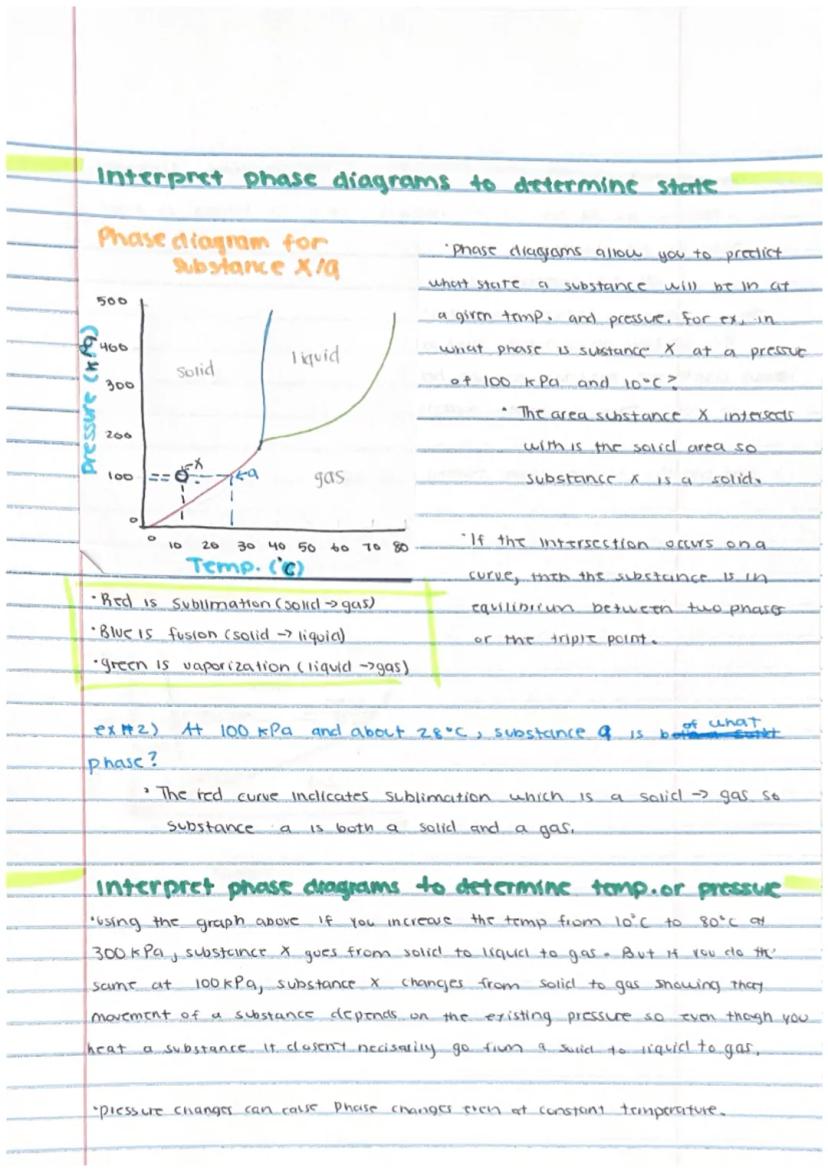 Interpret phase diagrams to determine state
Phase diagram for
Substance X/q
Pressure (kPa)
500
400
300
200
100
0
solid
liquid
gas
x
q
0 10 20 30 40 50 60 70 80
Temp. (°C)
• Red is sublimation (solid → gas)
• Blue is fusion (solid → liquid)
• green is vaporization (liquid → gas)
• Phase diagrams allow you to predict
what state a substance will be in at
a given temp. and pressure. For ex, in
what phase is substance X at a pressure
of 100 kPa and 10°C?
• The area substance X intersects
with is the solid area so
substance x is a solid.
• If the intersection occurs on a
curve, then the substance is in
equilibrium between two phases
or the triple point.
ex #2) At 100 kPa and about 28°C, substance q is of what
phase?
• The red curve indicates sublimation which is a solid → gas so
substance q is both a solid and a gas.
Interpret phase diagrams to determine temp. or pressure
• Using the graph above if you increase the temp from 10°C to 80°C at
300 kPa, substance X goes from solid to liquid to gas. But if you do the
same at 100 kPa, substance X changes from solid to gas showing that
movement of a substance depends on the existing pressure so even though you
heat a substance it doesn't necisarily go from a solid to liquid to gas.
• pressure changes can cause Phase changes even at constant temperature.